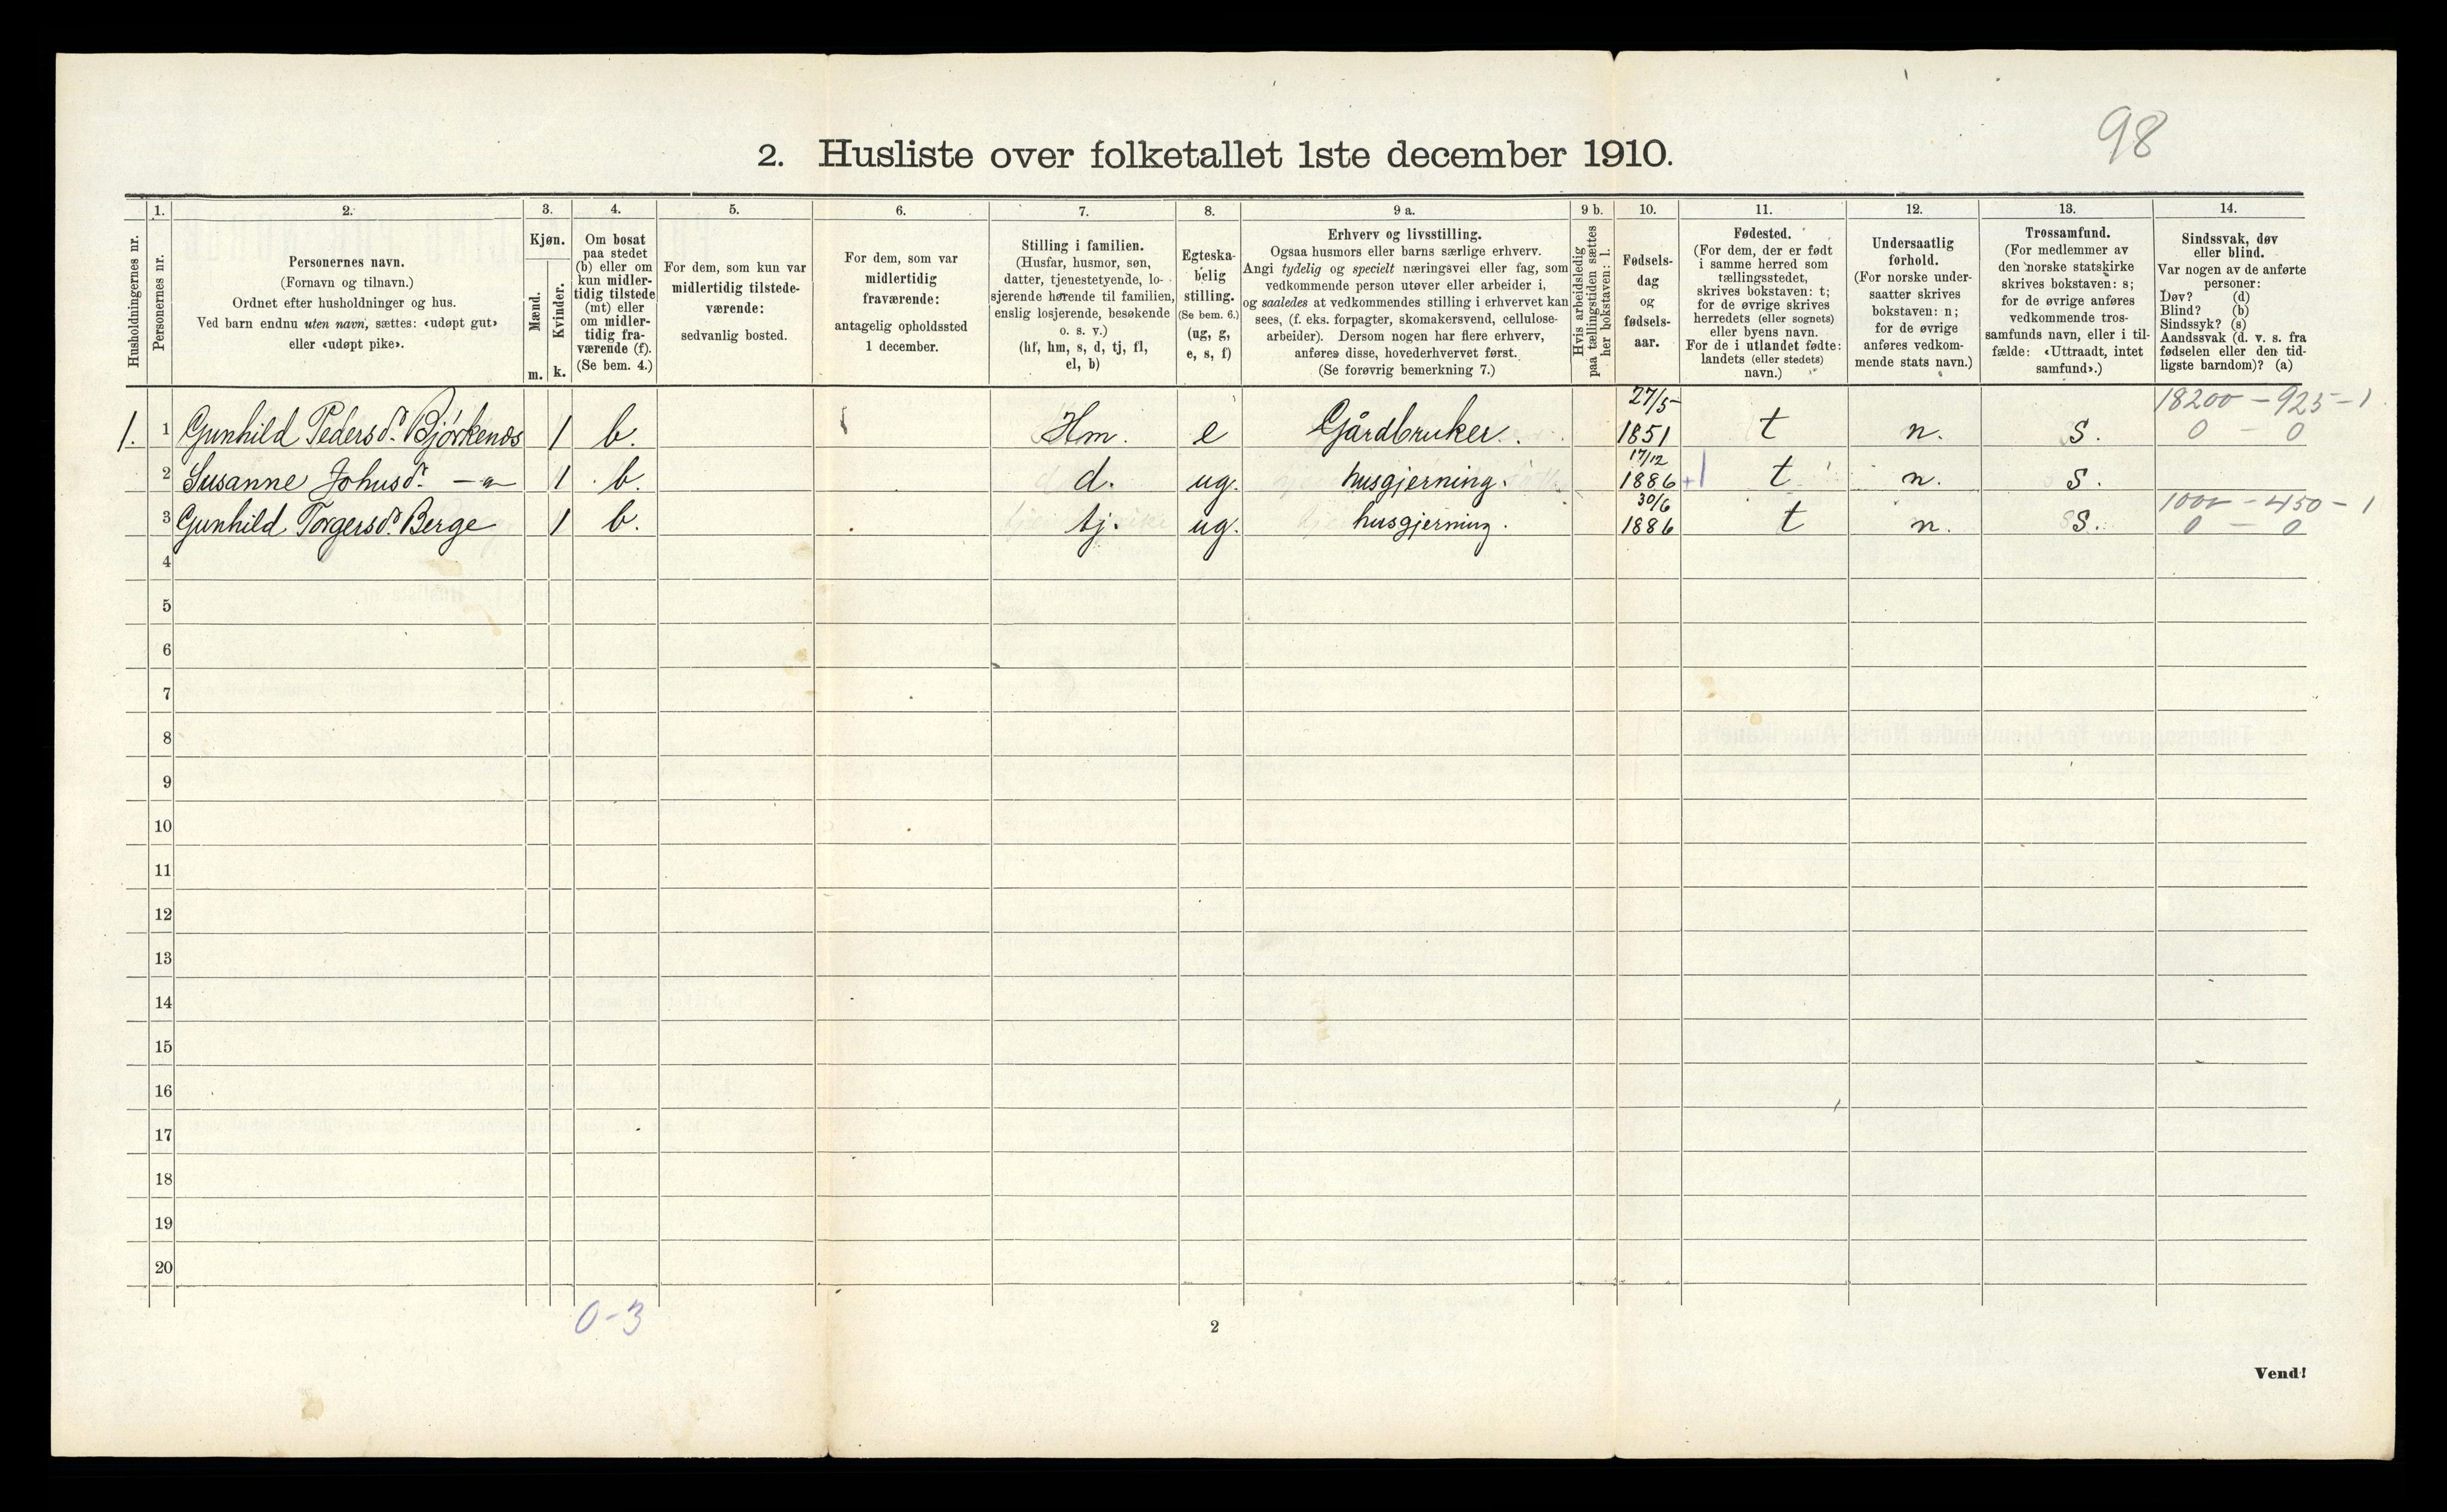 98
2. Husliste over folketallet 1ste december 1910.
Husholdningernes nr.
1.
Personernes nr.
2.
Personernes navn.
(Fornavn og tilnavn.)
Ordnet efter husholdninger og hus.
Ved barn endnu uten navn, sættes: «udøpt gut»
eller «udøpt pike».
3.
Kjøn.
Mænd.
Kvinder.
m.
k.
4.
Om bosat
paa stedet
(b) eller om
kun midler-
tidig tilstede
(mt) eller
om midler-
tidig fra-
værende (f).
(Se bem. 4.)
5.
For dem, som kun var
midlertidig tilstede-
værende:
sedvanlig bosted.
6.
For dem, som var
midlertidig
fraværende:
antagelig opholdssted
1 december.
7.
Stilling i familien.
(Husfar, husmor, søn,
datter, tjenestetyende, lo-
sjerende hørende til familien,
enslig losjerende, besøkende
o. s. v.)
(hf, hm, s, d, tj, fl,
el, b)
8.
Egteska-
belig
stilling.
(Se bem. 6.)
(ug, g,
e, s, f)
9 a.
Erhverv og livsstilling.
Ogsaa husmors eller barns særlige erhverv.
Angi tydelig og specielt næringsvei eller fag, som
vedkommende person utøver eller arbeider i,
og saaledes at vedkommendes stilling i erhvervet kan
sees, (f. eks. forpagter, skomakersvend, cellulose-
arbeider). Dersom nogen har flere erhverv,
anføres disse, hovederhvervet først.
(Se forøvrig bemerkning 7.)
9 b.
Hvis arbeidsledig
paa tællingstiden sættes
her bokstaven: l.
10.
Fødsels-
dag
og
fødsels-
aar.
11.
Fødested.
(For dem, der er født
i samme herred som
tællingsstedet,
skrives bokstaven: t;
for de øvrige skrives
herredets (eller sognets)
eller byens navn.
For de i utlandet fødte:
landets (eller stedets)
navn.)
12.
Undersaatlig
forhold.
(For norske under-
saatter skrives
bokstaven: n;
for de øvrige
anføres vedkom-
mende stats navn.)
13.
Trossamfund.
(For medlemmer av
den norske statskirke
skrives bokstaven: s;
for de øvrige anføres
vedkommende tros-
samfunds navn, eller i til-
fælde: «Uttraadt, intet
samfund».)
14.
Sindssvak, døv
eller blind.
Var nogen av de anførte
personer:
Døv? (d)
Blind? (b)
Sindssyk? (s)
Aandssvak (d. v. s. fra
fødselen eller den tid-
ligste barndom)? (a)
27/5 18200 - 925 - 1
1. 1 Gunhild Pedersd. Bjørkenes 1 b. Hm. e Gårdbruker. 1851 t n. S. 0 - 0
17/12
2 Susanne Johnsd. - " - 1 b. d. ug. husgjerning. 1886 +1 t n. S.
30/6 1000 - 450 - 1
3 Gunhild Torgersd. Berge 1 b. tj. ug. husgjerning. 1886 t n. S. 0 - 0
4
5
6
7
8
9
10
11
12
13
14
15
16
17
18
19
20
0-3
2
Vend!